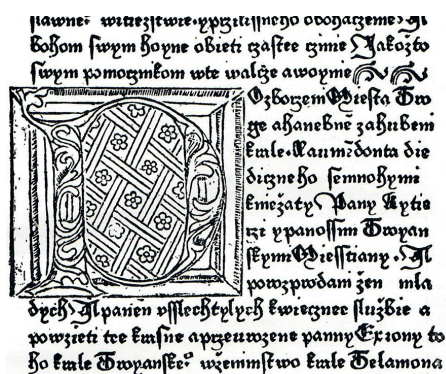 slawne witiezstwie. yprzilissneho obohaczeme A
bohom swym hoyne obieti czastee czinie Jakožto
swym pomocznikom wte walcze awoynie
O zborzem Miesta Tro
ge ahanebne zahubeni
krale. Laumedonta die
diczneho semnohymi
kniežaty Pany Rytie
rzi ypanossim Troyan
skym Miesstiany. A
powzpwdam žen mla
dych A panen vsslechtylych kwiecznee službie a
powzieti tee krasne aprzeurozene panny Exiony to
ho krale Troyanske° wženimstwo krale Thelamona